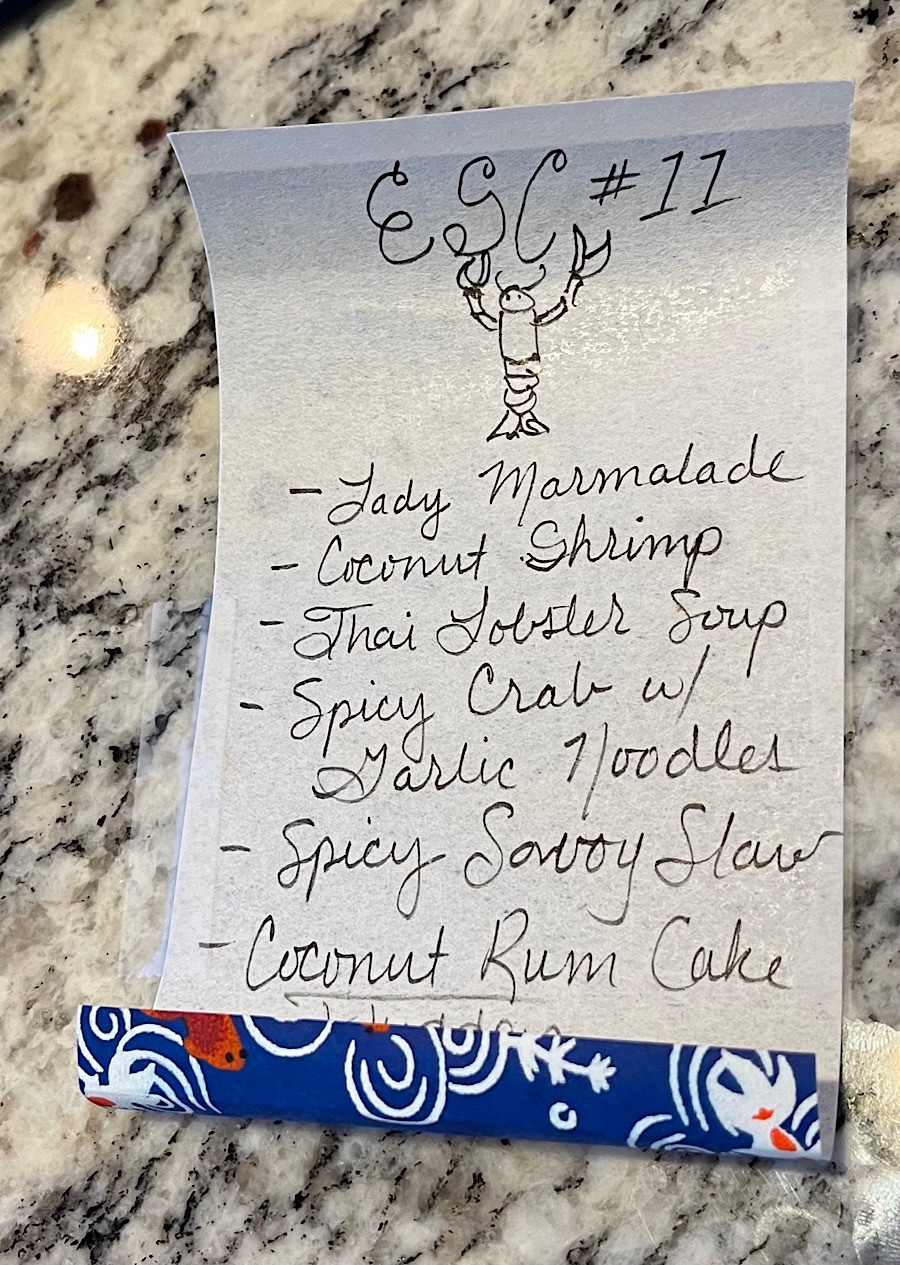 ESC #11
- Lady Marmalade
- Coconut Shrimp
- Thai Lobster Soup
- Spicy Crab w/
Garlic Noodles
- Spicy Savoy Slaw
- Coconut Rum Cake